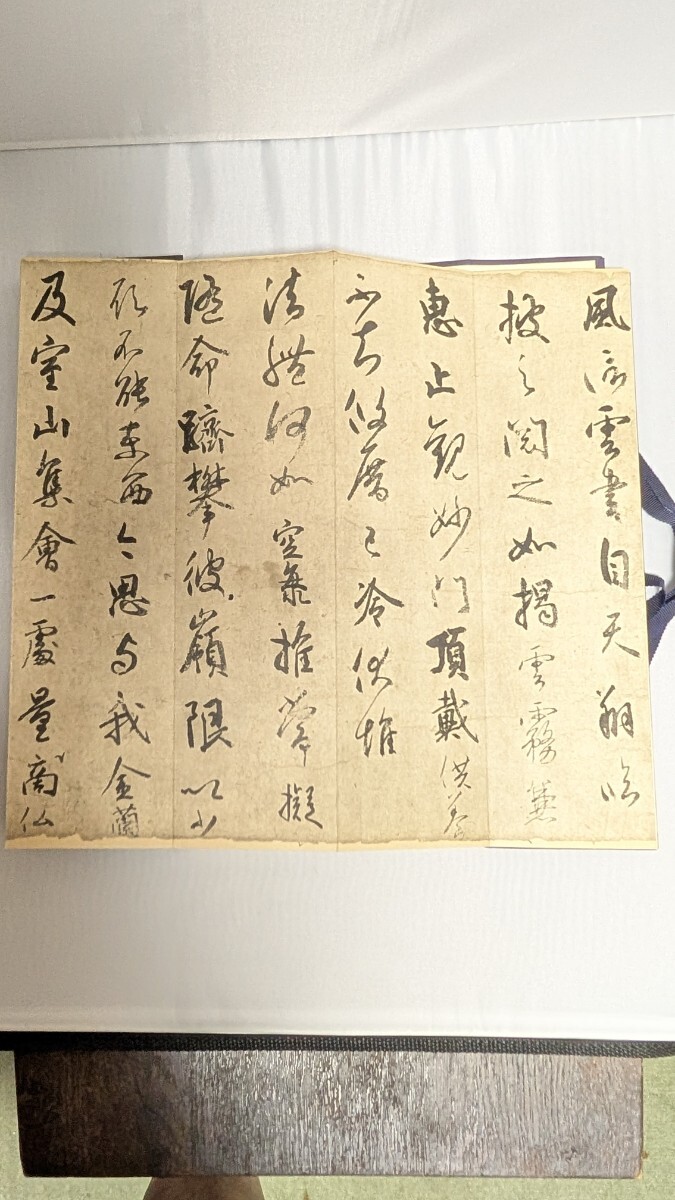 風信雲書自天翔臨
披之閱之如揭雲霧兼
惠止觀妙門頂戴供養
不知攸厝已冷伏惟
法體何如空海推常擬
隨命躋攀彼嶺限以少
願不能東西今思与我金蘭
及室山集會一處量商仏